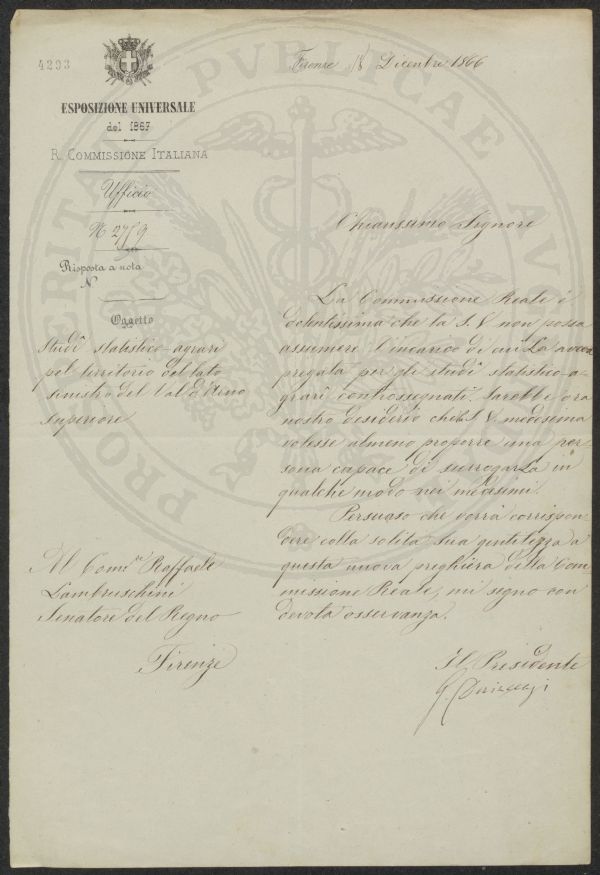 4293
Firenze 18 Dicembre 1866
ESPOSIZIONE UNIVERSALE
del 1867
R. COMMISSIONE ITALIANA
Ufficio
N 2759
Risposta a nota
N
Oggetto
Studî statistico-agrarî
pel territorio del lato
sinistro del Val d'Arno
superiore
Al Comm.re Raffaele
Lambruschini
Senatore del Regno
Firenze
Chiarissimo Signore
La Commissione Reale è
dolentissima che la S. V. non possa
assumere l'incarico di cui La aveva
pregata per gli studî statistico-a-
grarî controssegnati. Sarebbe ora
nostro desiderio che la S. V. medesima
volesse almeno proporre una per-
sona capace di surrogarLa in
qualche modo nei medesimi.
Persuaso che vorrà corrispon-
dere colla solita sua gentilezza a
questa nuova preghiera della Com-
missione Reale, mi segno con
devota osservanza.
Il Presidente
PUBLICAE